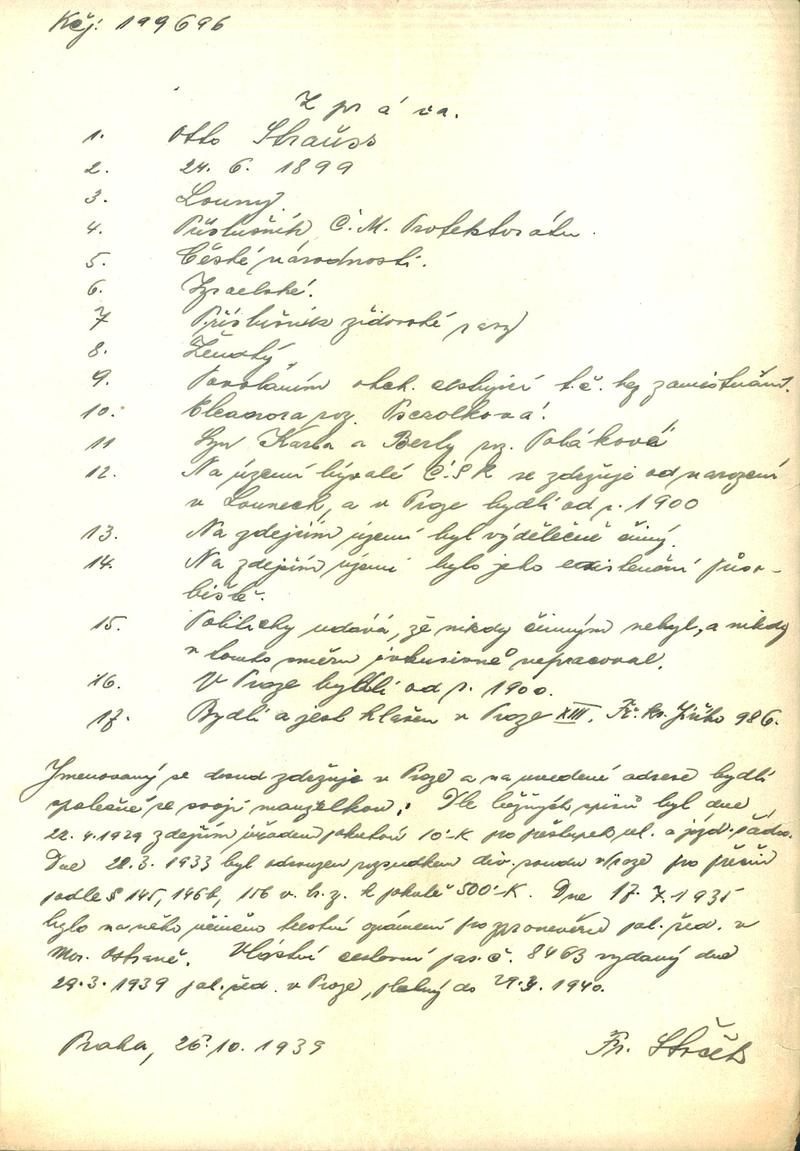 Kčj: 199696
Zpráva.
1. Otto Strauss
2. 24. 6. 1899
3. Louny.
4. Příslušník Č. M. Protektorátu.
5. České národnosti.
6. Izraelské.
7 Příslušník židovské rasy
8. Ženatý
9. Povoláním obch. cestující t.č. bez zaměstnání.
10. Eleanora roz.
11 Syn Karla a Berty roz. Polákové
12. Na území bývalé Č.S.R se zdržuje od narození
v Lounech, a v Praze bydlí od r. 1900
13. Na zdejším území byl výdělečně činný.
14. Na zdejším území bylo jeho existenční půso-
biště.
15. Politicky udává, že nikdy činným nebyl, a nikdy
v tomto směru nepracoval.
16. V Praze bydlí od r. 1900.
17. Bydlí a jest hlášen v Praze XIII. Tř. kr. Jiřího 986.
Jmenovaný se dosud zdržuje v Praze a na uvedené adrese bydlí
společně se svojí manželkou. Dle zdejších spisů byl dne
22. 4. 1929 zdejším úřadem pokutován 10 K pro přestupek ul. a jízd. řádu.
Dne 28. 3. 1933 byl odsouzen rozsudkem div. soudu v Praze pro přečin
podle § 145, 146b, 156 v. tr. z. k pokutě 500 K. Dne 17. 7. 1935
bylo na něho učiněno trestní oznámení pro zpronevěru pol. řed. v
Mor. Ostravě. Vlastní cestovní pas č. 8463 vydaný dne
29. 3. 1939 pol. řed. v Praze, platný do 29. 3. 1940.
Praha, 26. 10. 1939
Fr.